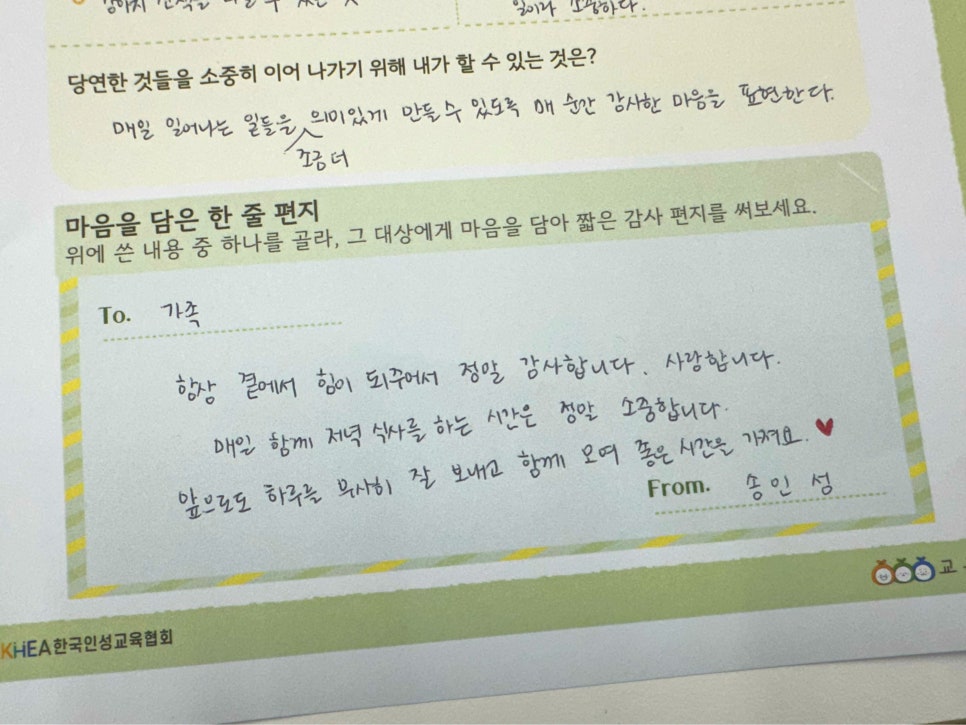 일이라 소중하다.
당연한 것들을 소중히 이어 나가기 위해 내가 할 수 있는 것은?
매일 일어나는 일들을 조금 더 의미있게 만들 수 있도록 매 순간 감사한 마음을 표현한다.
마음을 담은 한 줄 편지
위에 쓴 내용 중 하나를 골라, 그 대상에게 마음을 담아 짧은 감사 편지를 써보세요.
To. 가족
항상 곁에서 힘이 되주어서 정말 감사합니다. 사랑합니다.
매일 함께 저녁 식사를 하는 시간은 정말 소중합니다.
앞으로도 하루를 무사히 잘 보내고 함께 모여 좋은 시간을 가져요. ♥
From. 송인성
교
KHEA한국인성교육협회